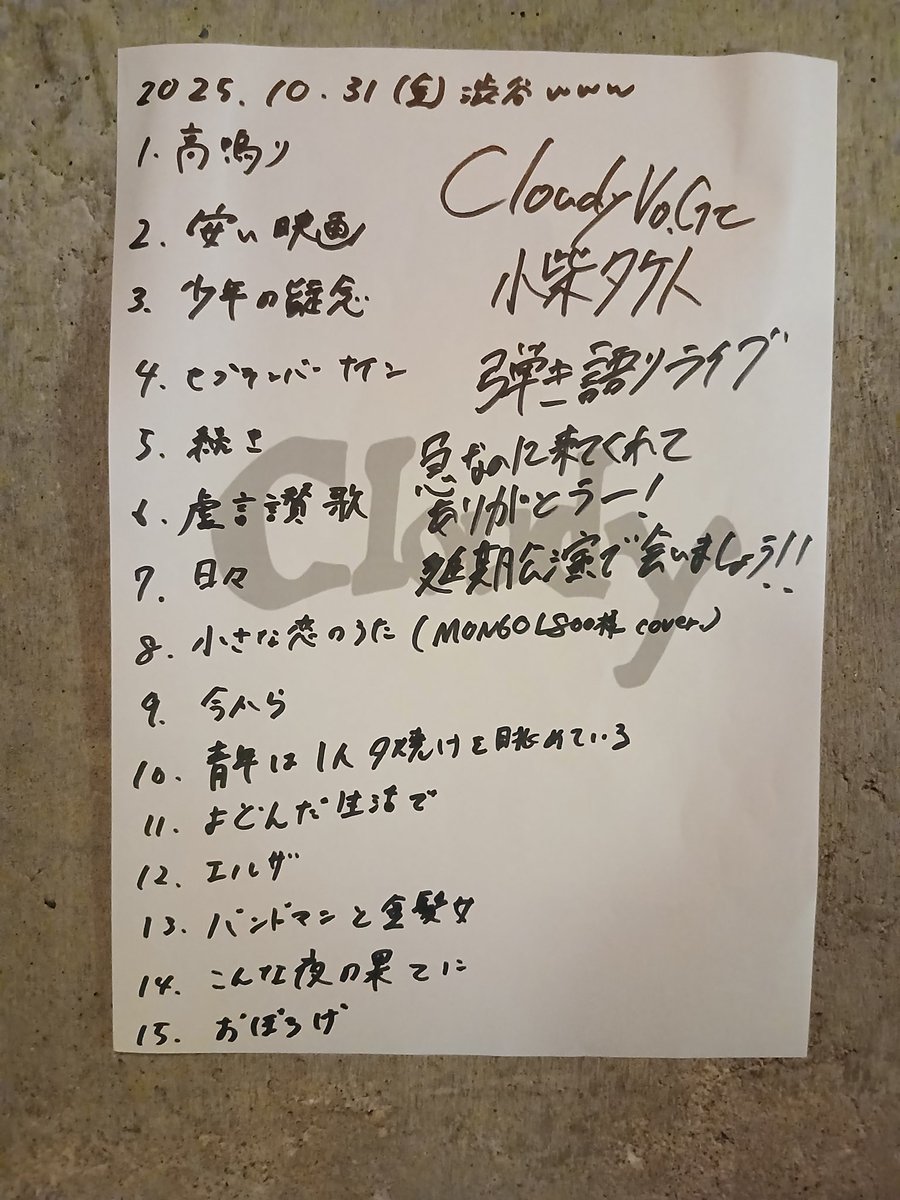 2025.10.31(金)渋谷www
Cloudy Vo.Gt
小柴タケト
弾き語りライブ
急なのに来てくれて
ありがとうー!
延期公演で会いましょう!!
1. 高鳴り
2. 安い映画
3. 少年の疑念
4. セプテンバーナイン
5. 続き
6. 虚言讃歌
7. 日々
8. 小さな恋のうた(MONGOL800様 cover.)
9. 今から
10. 青年は1人夕焼けを眺めている
11. よどんだ生活で
12. エルザ
13. バンドマンと金髪女
14. こんな夜の果てに
15. おぼろげ
Cloudy